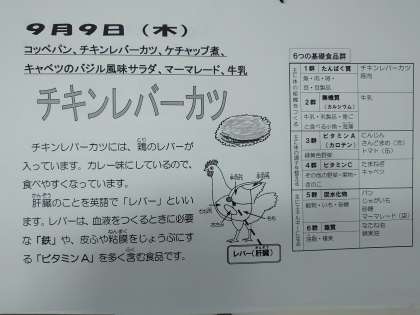 9月9日（木）
コッペパン、チキンレバーカツ、ケチャップ煮、
キャベツのバジル風味サラダ、マーマレード、牛乳
チキンレバーカツ
チキンレバーカツには、鶏のレバーが
入っています。カレー味にしているので、
食べやすくなっています。
かんぞう
肝臓のことを英語で「レバー」といい
ます。レバーは、血液をつくるときに必要
ねんまく
な「鉄」や、皮ふや粘膜をじょうぶにする
「ビタミンA」を多く含む食品です。
レバー（肝臓）
6つの基礎食品群
1群 たんぱく質
魚・肉・卵・
豆・豆製品
チキンレバーカツ
豚肉
2群 無機質
（カルシウム）
牛乳・乳製品・骨ご
と食べる小魚・海藻
牛乳
3群 ビタミンA
（カロテン）
緑黄色野菜
にんじん
さんどまめ（市）
トマト（缶）
4群 ビタミンC
その他の野菜・果物・
きのこ
たまねぎ
キャベツ
5群 炭水化物
穀物・いも・砂糖
パン
じゃがいも
砂糖
マーマレード（袋）
6群 脂質
油脂・種実
なたね油
綿実油